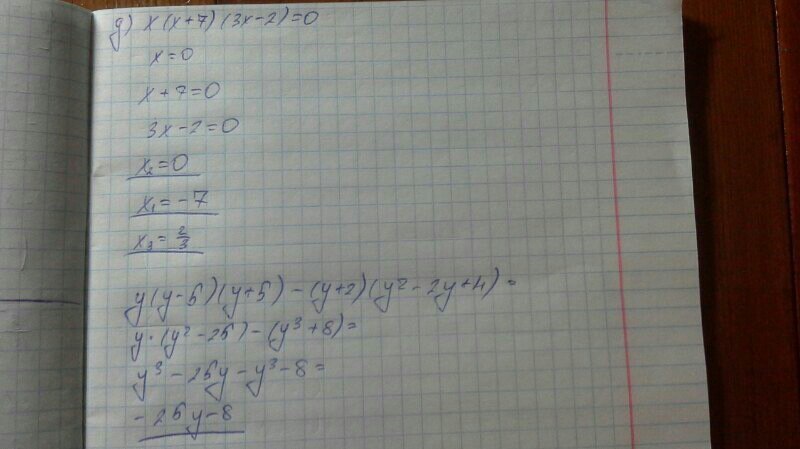 д) x(x+7)(3x-2)=0
x=0
x+7=0
3x-2=0
x₂=0
x₁=-7
x₃=2/3
y(y-5)(y+5)-(y+2)(y²-2y+4)=
y·(y²-25)-(y³+8)=
y³-25y-y³-8=
-25y-8